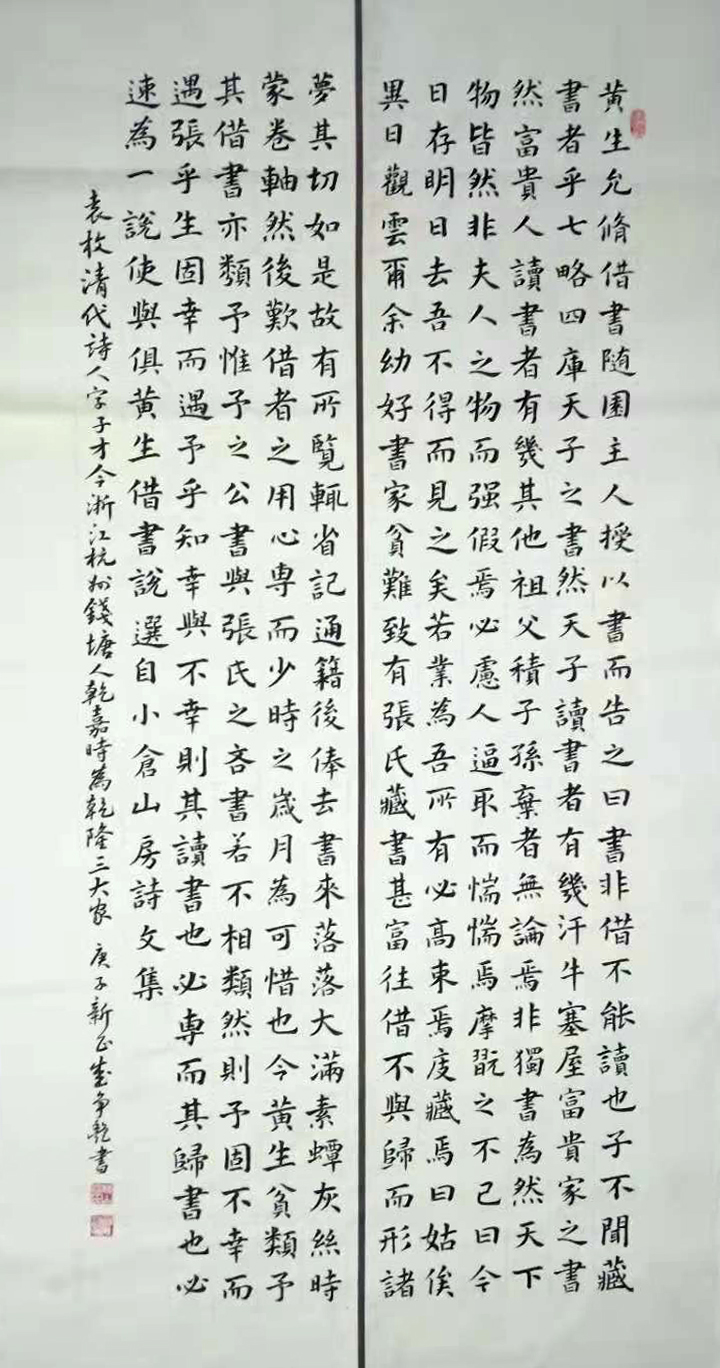 黃生允脩借書隨園主人授以書而告之曰書非借不能讀也子不聞藏
書者乎七略四庫天子之書然天子讀書者有幾汗牛塞屋富貴家之書
然富貴人讀書者有幾其他祖父積子孫棄者無論焉非獨書為然天下
物皆然非夫人之物而强假焉必慮人逼取而惴惴焉摩翫之不已曰今
日存明日去吾不得而見之矣若業為吾所有必高束焉庋藏焉曰姑俟
異日觀雲爾余幼好書家貧難致有張氏藏書甚富往借不與歸而形諸
夢其切如是故有所覽輒省記通籍後俸去書來落落大滿素蟫灰絲時
蒙卷軸然後歎借者之用心專而少時之歲月為可惜也今黃生貧類予
其借書亦類予惟予之公書與張氏之吝書若不相類然則予固不幸而
遇張乎生固幸而遇予乎知幸與不幸則其讀書也必專而其歸書也必
速為一說使與俱黃生借書說選自小倉山房詩文集
袁枚清代詩人字子才今浙江杭州錢塘人乾嘉時為乾隆三大家 庚子新正 書